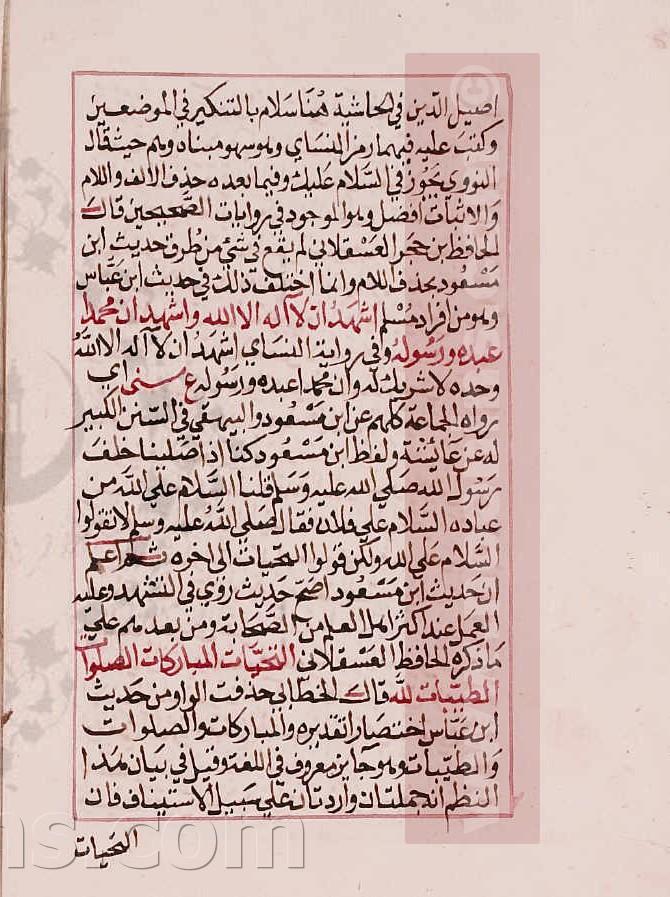 اصيل الدين في الحاشية هنا سلام بالتنكير في الموضعين
وكتب عليه فيهما رمز النساي وهو سهو مبناه وهم حيث قال
النووي يجوز في السلام عليك وفيما بعده حذف الالف واللام
والاثبات افضل وهو الموجود في روايات الصحيحين قال
الحافظ بن حجر العسقلاني لم يقع في شئ من طرق حديث ابن
مسعود بحذف اللام وانما اختلف ذلك في حديث ابن عباس
وهو من افراد مسلم اشهد ان لا اله الا الله واشهد ان محمدا
عبده ورسوله وفي رواية النساي اشهد ان لا اله الا الله
وحده لا شريك له وان محمدا عبده ورسوله ع سني اي
رواه الجماعة كلهم عن ابن مسعود والبيهقي في السنن الكبير
له عن عائشة ولفظ ابن مسعود كنا اذا صلينا خلف
رسول الله صلي الله عليه وسلم قلنا السلام علي الله من
عباده السلام علي فلان فقال صلي الله عليه وسلم لا تقولوا
السلام علي الله ولكن قولوا التحيات الي اخره ثم اعلم
ان حديث ابن مسعود اصح حديث روي في التشهد وعليه
العمل عند اكثر اهل العلم من الصحابة ومن بعدهم علي
ما ذكره الحافظ العسقلاني التحيات المباركات الصلوات
الطيبات لله قال الخطابي حذفت الواو من حديث
ابن عباس اختصارا تقديره والمباركات والصلوات
والطيبات وهو جايز معروف في اللغة وقيل في بيان هذا
النظم انه جملتان واردتان علي سبيل الاستيناف فان
التحيات
ns.com